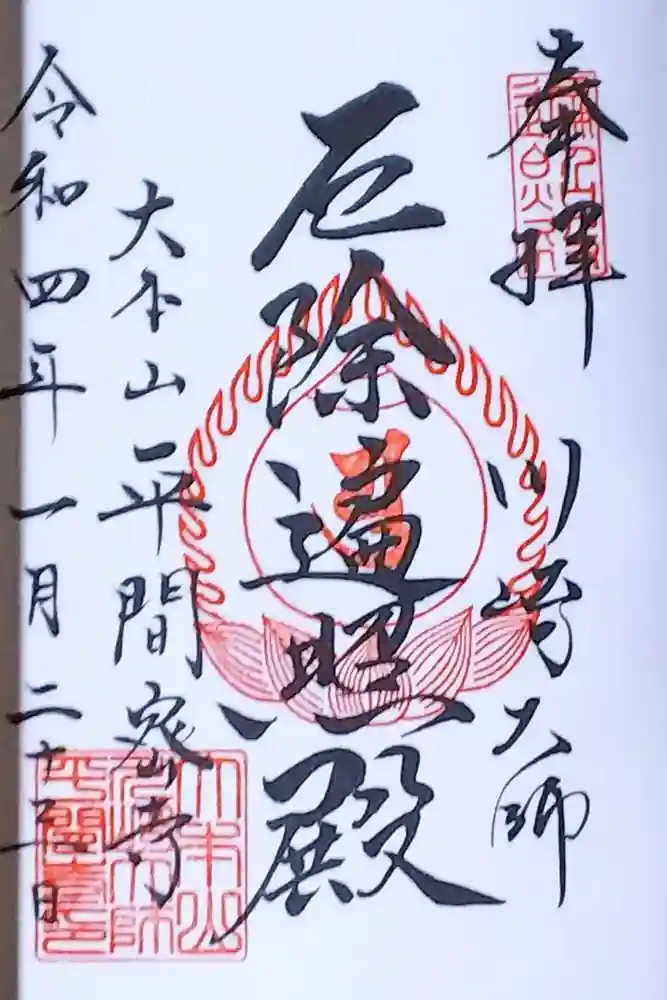 奉拝
川崎大師
厄除遍照殿
大本山平間密寺
令和四年一月二十五日